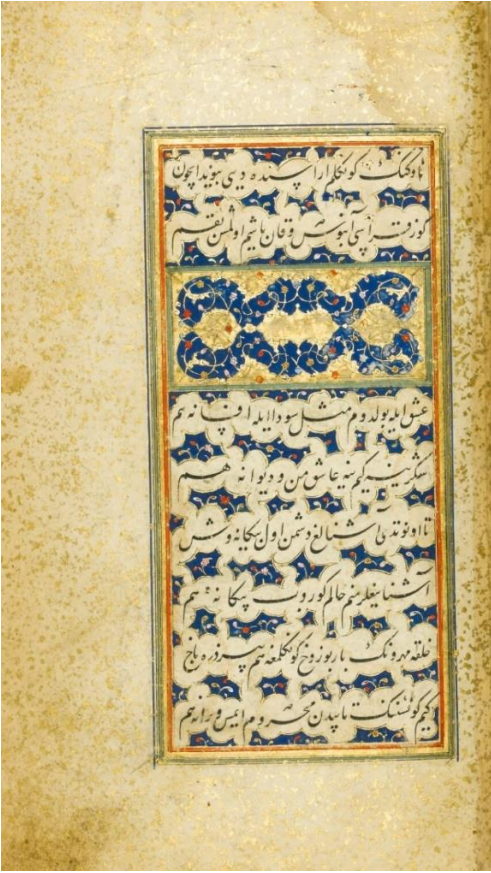 ناوکنک کونکلم ارا دیی چون
کوز قراسی آبنوس و قان یاشیم اولمش بقم
عشق ایله بولدوم مثل سودا ایله افسانه هم
شکر ینه کیم سنه عاشق من و دیوانه هم
تا اونوتدی آشنالیغ دشمن اول بیکانه وش
آشنا ییغلر منم حالم کوروب بیکانه هم
خلقه مهرونک بار بوزوخ کونکلمغه هم بیر ذره باخ
کیم کونشنک تابیدن محروم ایمس ویرانه هم